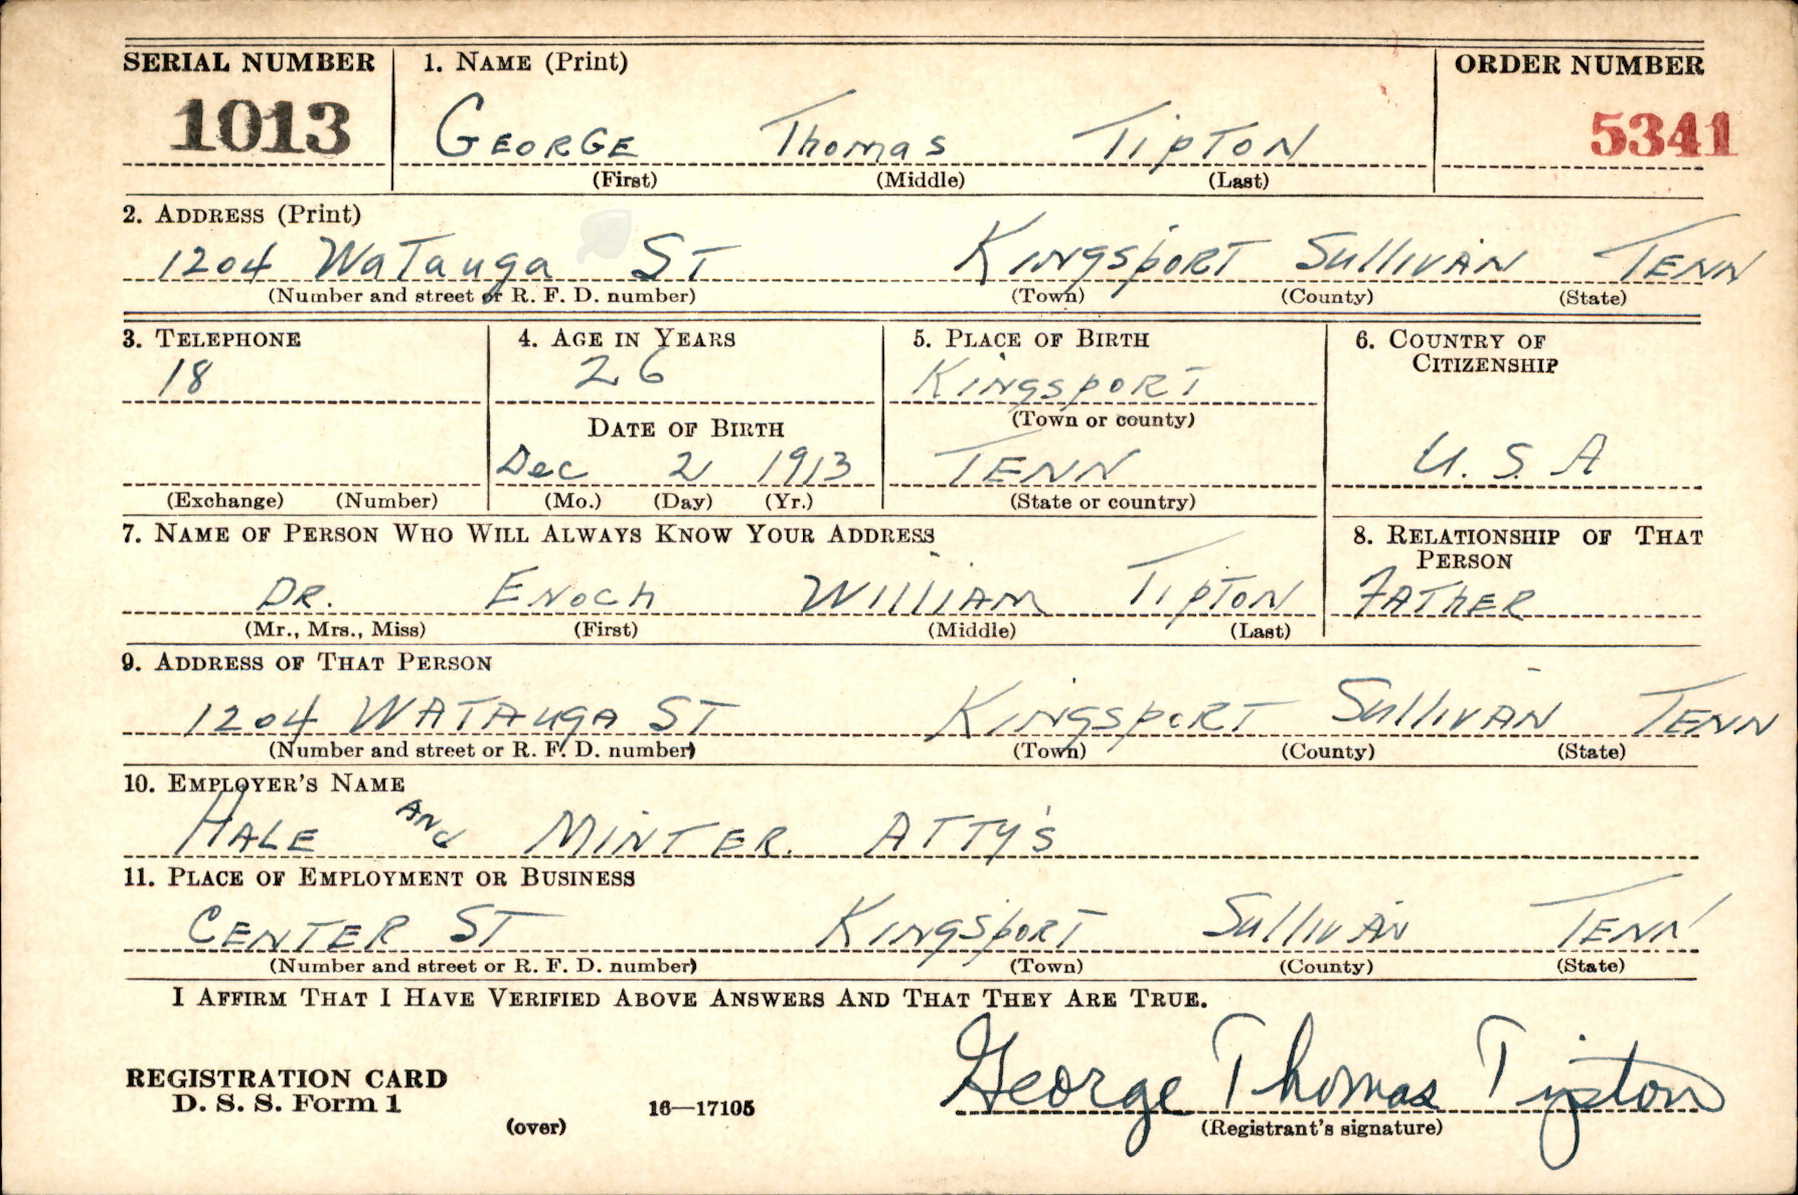 SERIAL NUMBER 1. NAME (Print) ORDER NUMBER
1013 GEORGE Thomas TIPTON 5341
(First) (Middle) (Last)
2. ADDRESS (Print)
1204 WaTauga ST KINGSPORT SullIVAN TENN
(Number and street or R. F. D. number) (Town) (County) (State)
3. TELEPHONE 4. AGE IN YEARS 5. PLACE OF BIRTH 6. COUNTRY OF
CITIZENSHIP
18 26 KINGSPORT
(Town or county)
DATE OF BIRTH
Dec 2 1913 TENN U.S.A
(Exchange) (Number) (Mo.) (Day) (Yr.) (State or country)
7. NAME OF PERSON WHO WILL ALWAYS KNOW YOUR ADDRESS 8. RELATIONSHIP OF THAT
PERSON
DR. ENOCH WIllIAM TIPTON FATHER
(Mr., Mrs., Miss) (First) (Middle) (Last)
9. ADDRESS OF THAT PERSON
1204 WATAUGA ST KINGSPORT SullIVAN TENN
(Number and street or R. F. D. number) (Town) (County) (State)
10. EMPLOYER'S NAME
HALE AND MINTER. ATTY'S
11. PLACE OF EMPLOYMENT OR BUSINESS
CENTER ST KINGSPORT SullIVAN TENN
(Number and street or R. F. D. number) (Town) (County) (State)
I AFFIRM THAT I HAVE VERIFIED ABOVE ANSWERS AND THAT THEY ARE TRUE.
George Thomas Tipton
REGISTRATION CARD
D. S. S. Form 1
(over) 16—17105 (Registrant's signature)